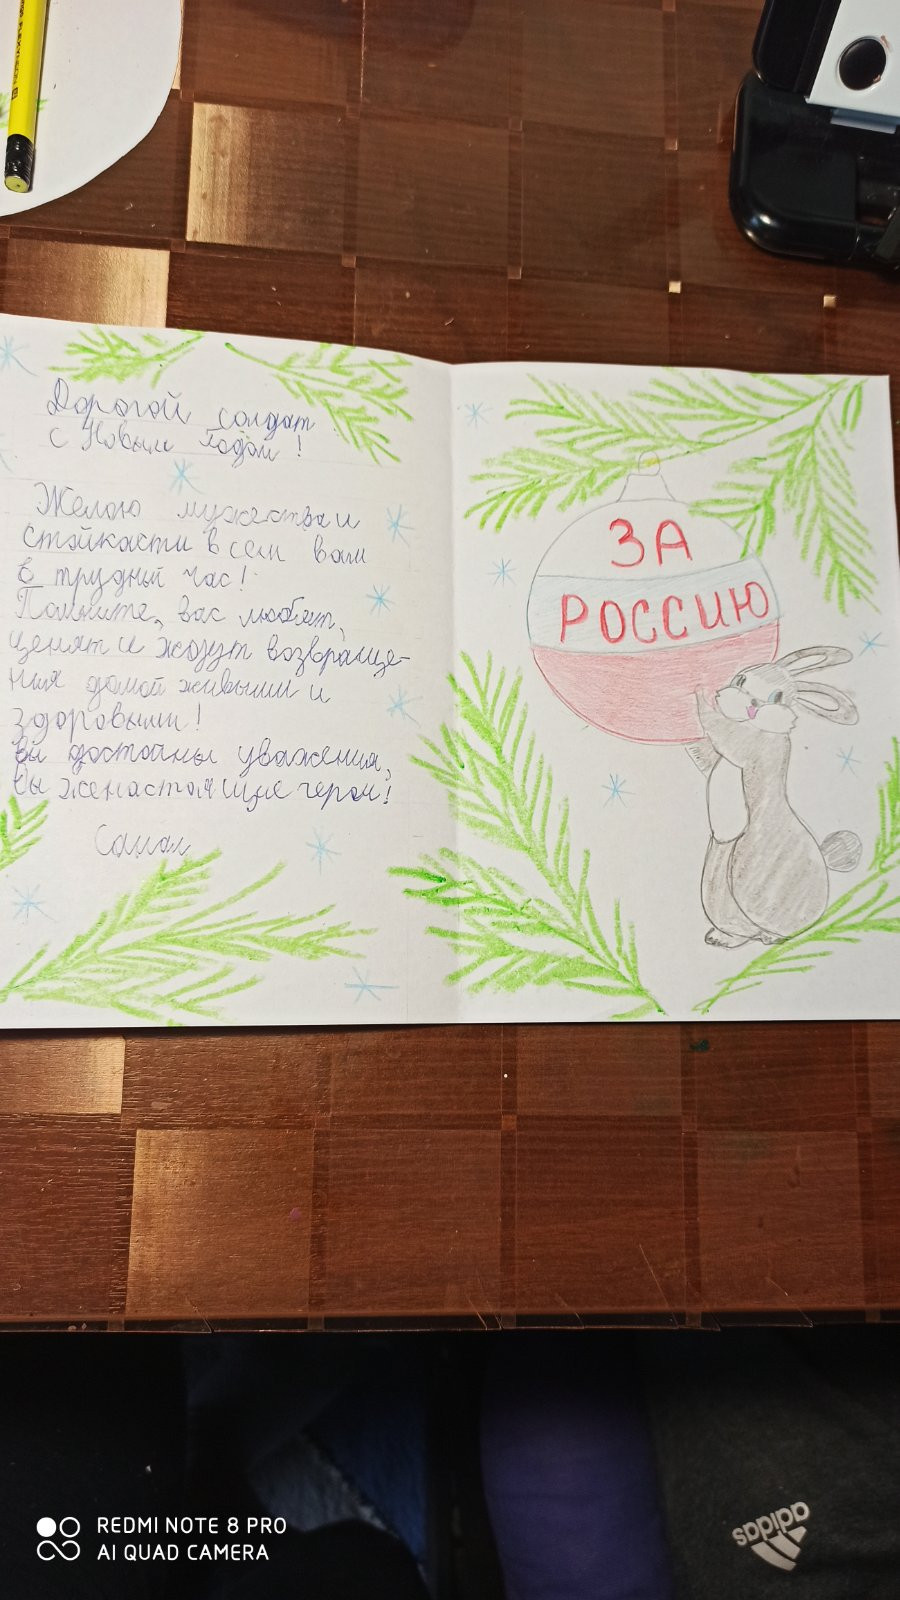 Дорогой солдат
с Новым Годом!
Желаю мужества и
стойкасти всем вам
в трудный час!
Помните, вас любят,
ценят и ждут возвраще-
ния домой живыми и
здоровыми!
Вы достойны уважения,
Вы же настоящие герои!
ЗА
РОССИЮ
adidas
REDMI NOTE 8 PRO
AI QUAD CAMERA